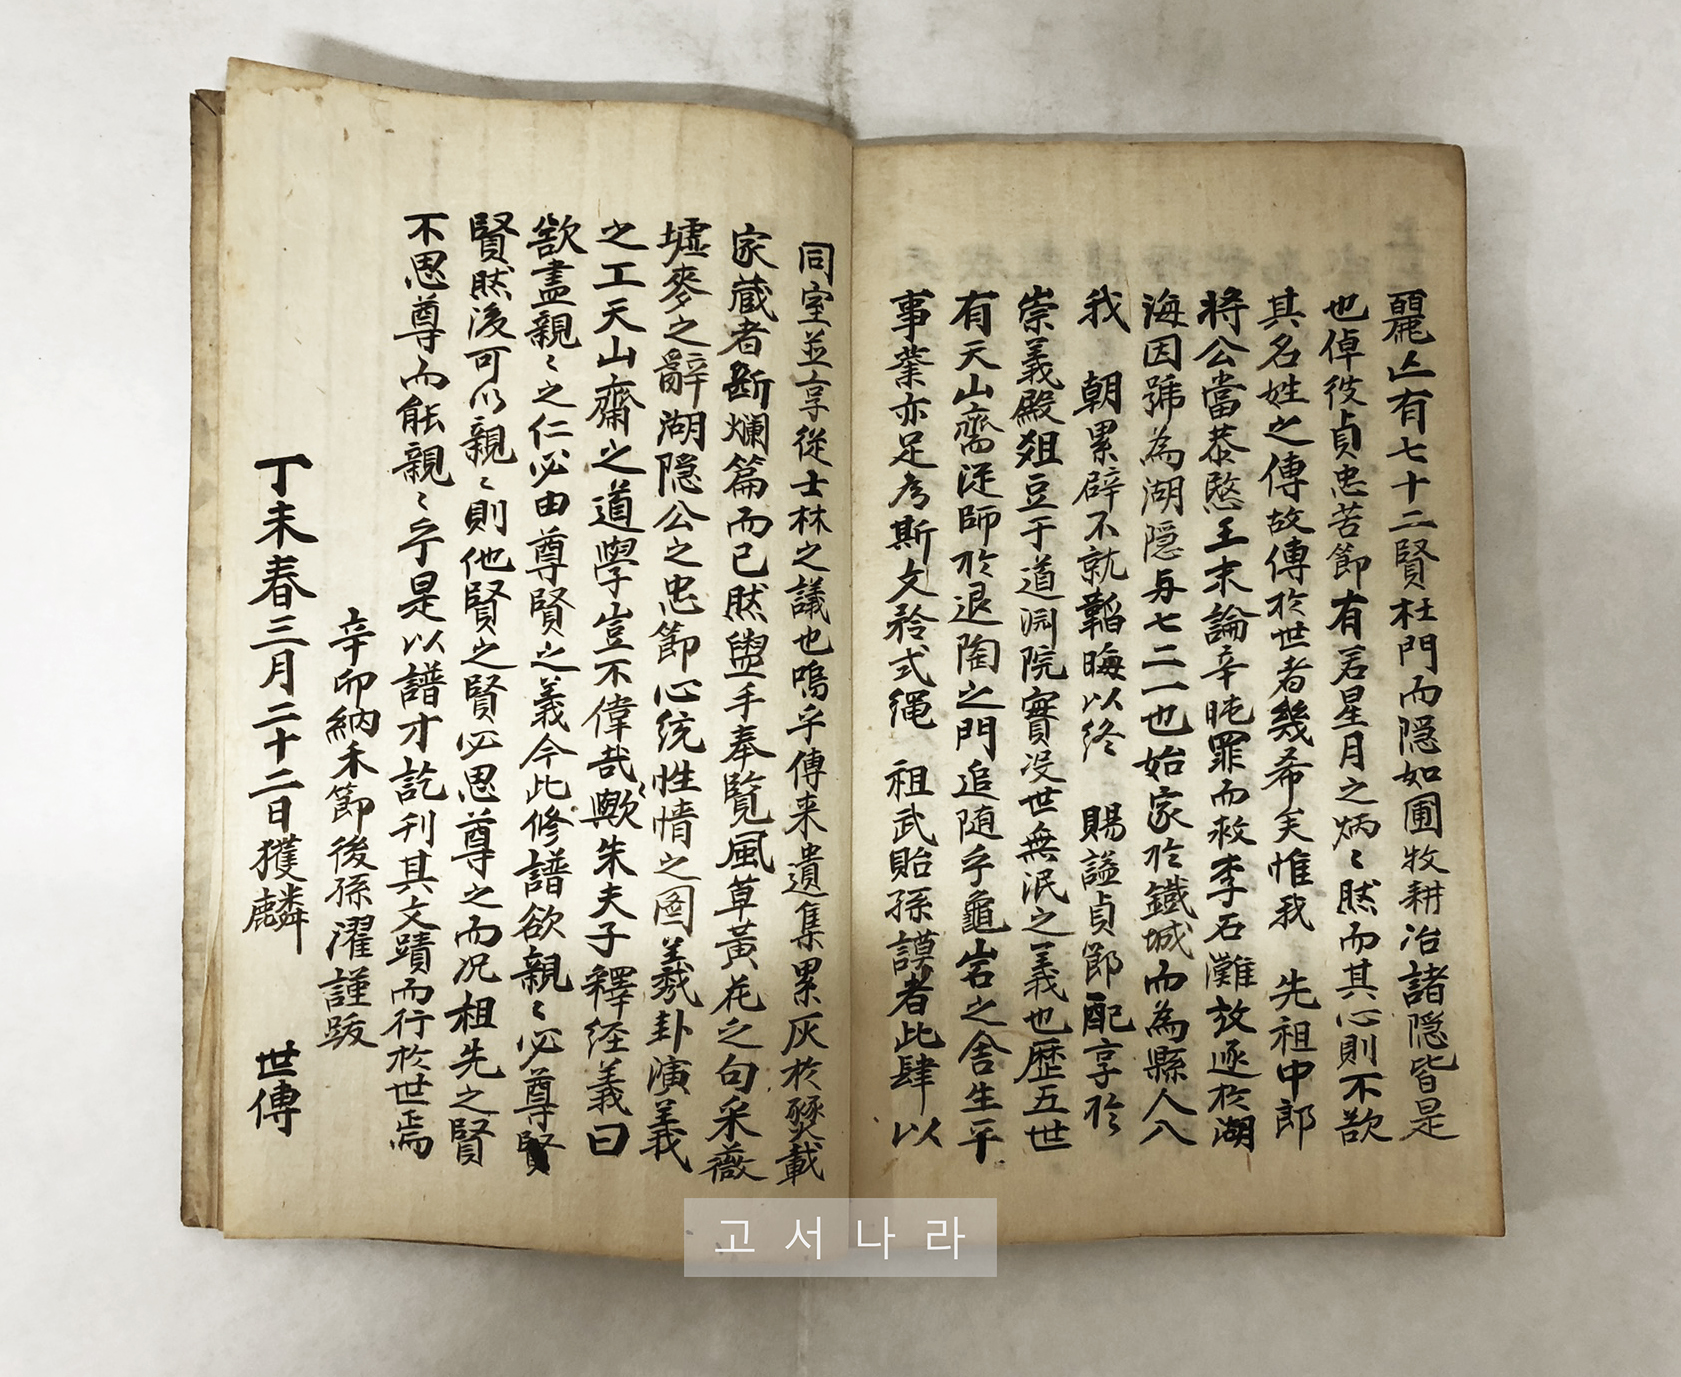 麗亡有七十二賢杜門而隐如圃牧耕冶諸隐皆是
也倬彼貞忠苦節有若星月之炳〻然而其心則不欲
其名姓之傳故傳於世者幾希矣惟我 先祖中郎
將公當恭愍王末論辛旽罪而救李石灘放逐於湖
海因號為湖隠与七二一也始家於鐵城而為縣人入
我 朝累辟不就韜晦以終 賜謚貞節配享於
崇義殿俎豆于道淵院實没世無泯之義也歷五世
有天山齋從師於退陶之門追随乎龜岩之舍生平
事業亦足為斯文矜式繩 祖武貽孫謨者此肆以
同室並享從士林之議也嗚乎傳来遺集累灰於燹載
家蔵者断爛篇而已然盥手奉覧風草黃花之句采薇
墟麥之辭湖隠公之忠節心統性情之图羲卦演義
之工天山齋之道學豈不偉哉歟朱夫子釋経義曰
欲盡親〻之仁必由尊賢之義今此修譜欲親〻必尊賢
賢然後可以親〻則他賢之賢必思尊之而况祖先之賢
不思尊而能親〻乎是以譜才訖刊其文蹟而行於世焉
辛卯納禾節後孫濯謹跋
丁未春三月二十二日獲麟 世傳
고서나라